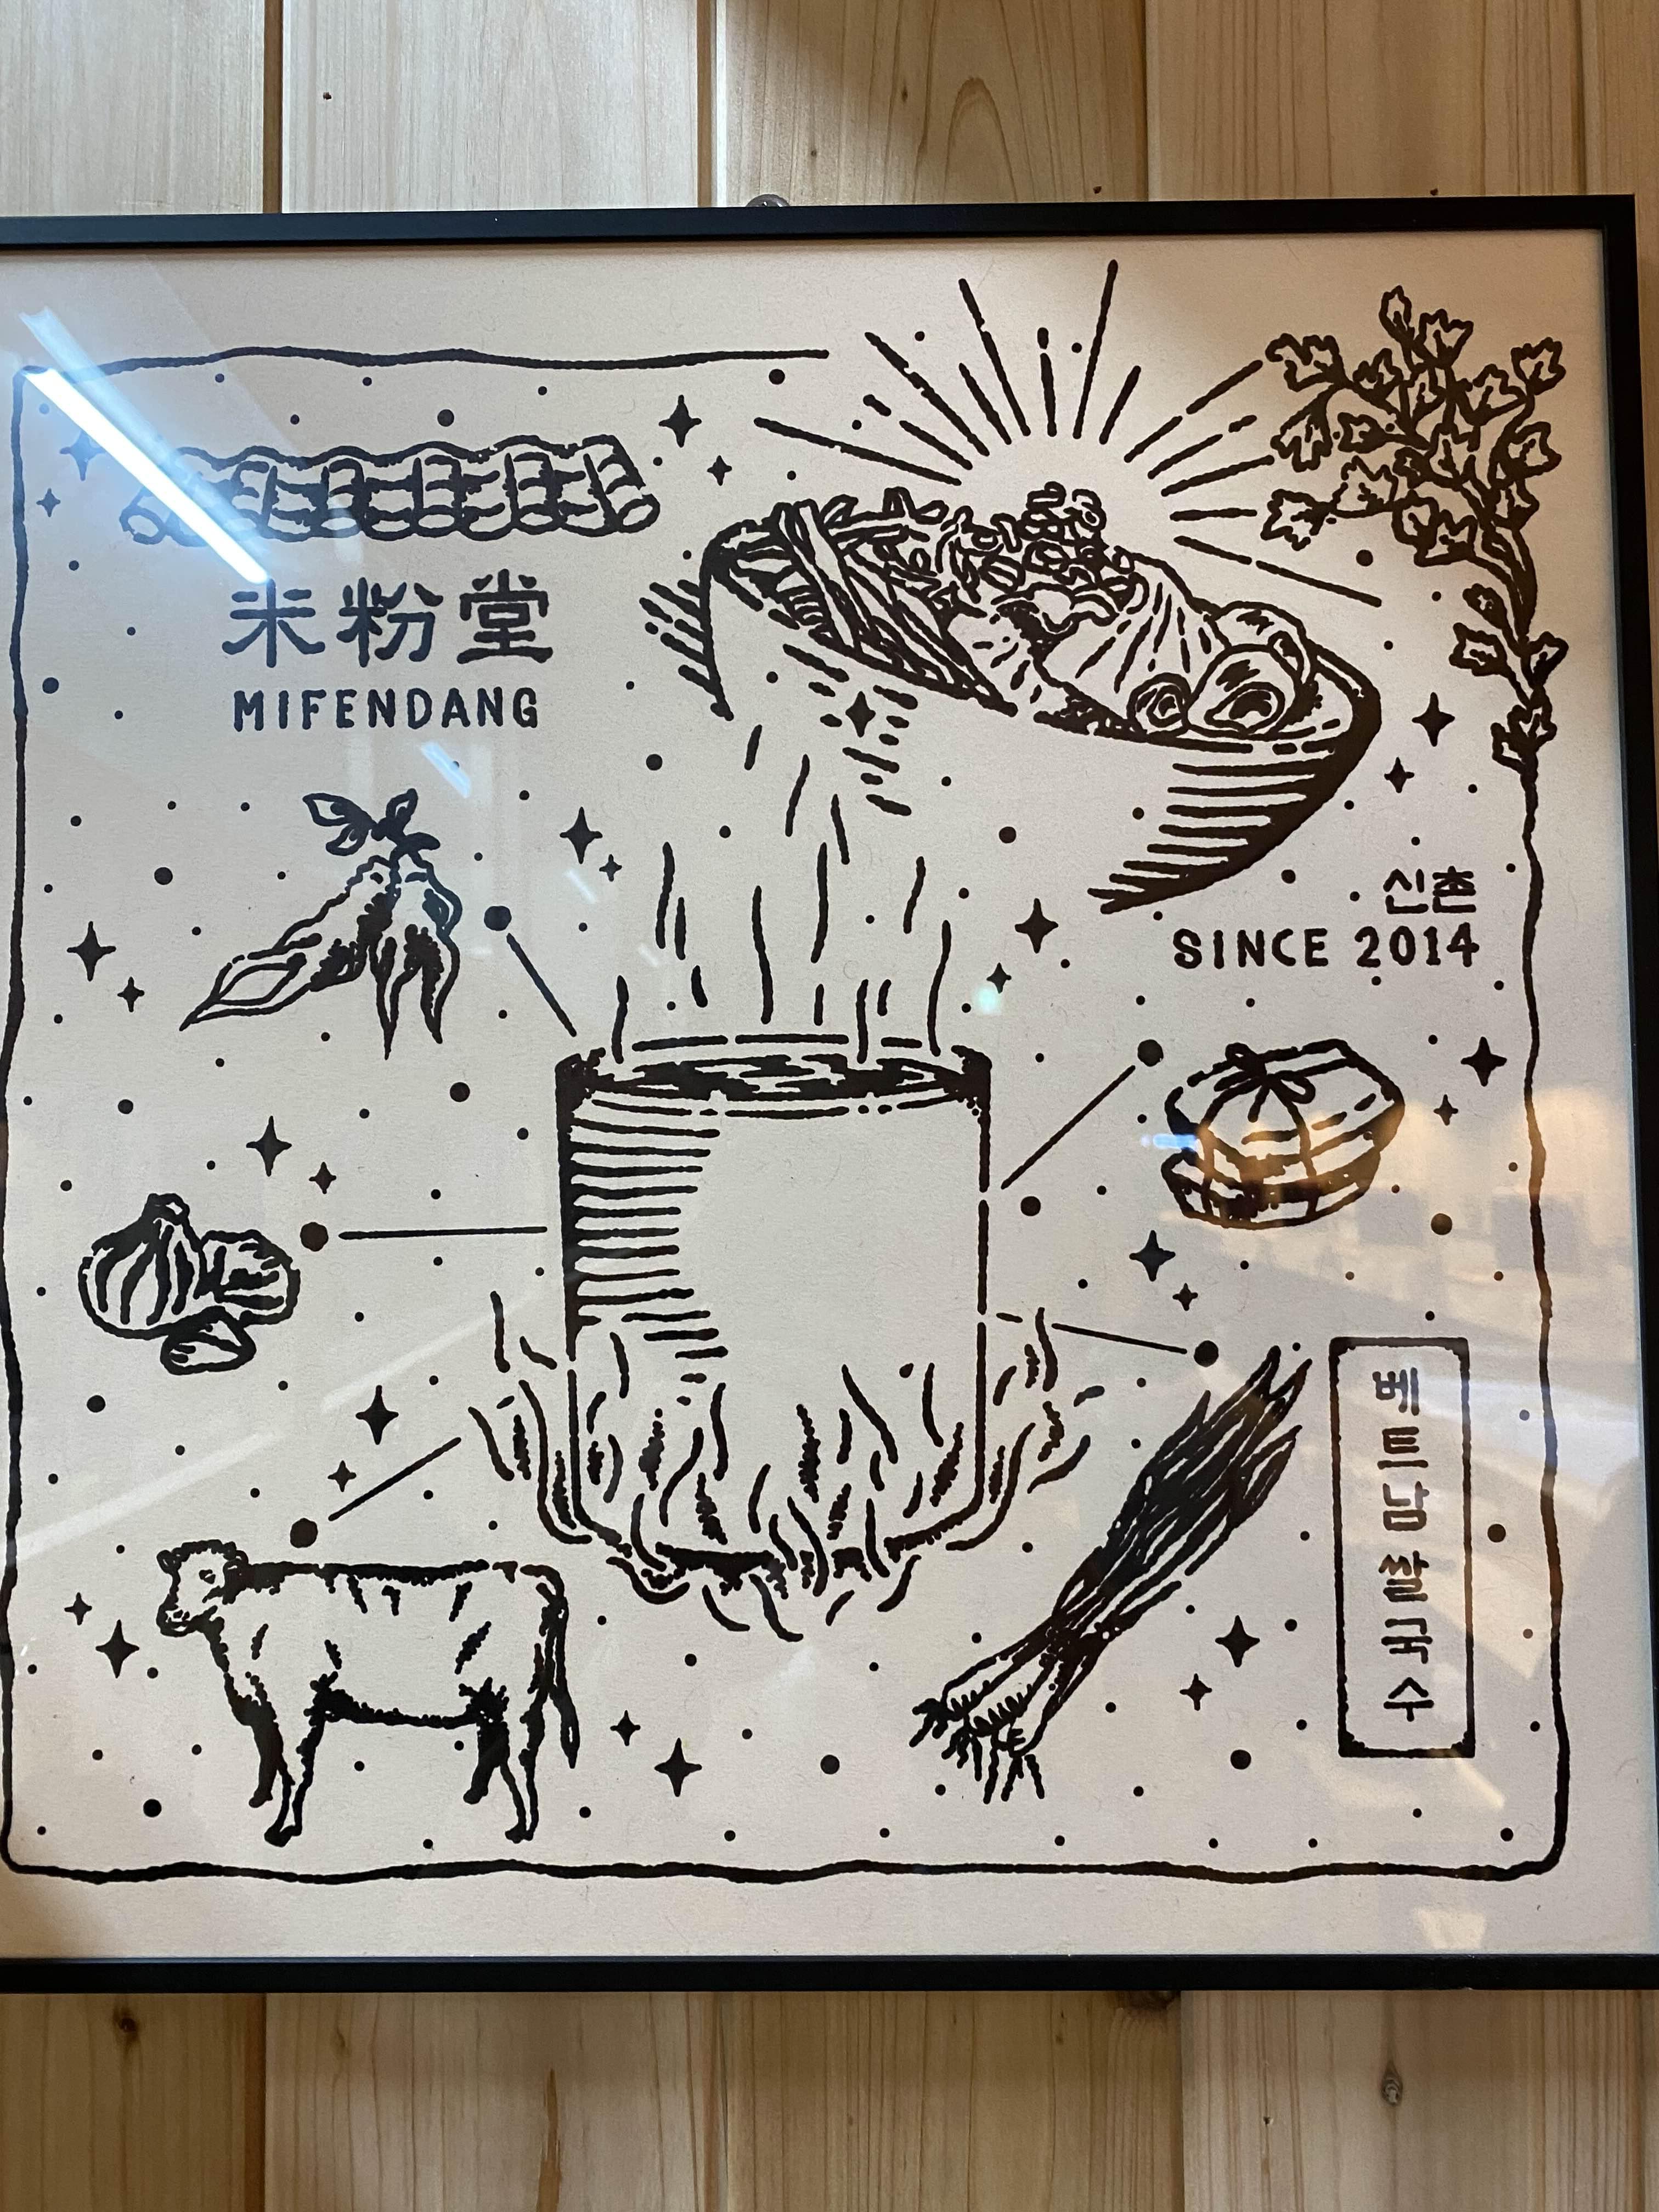 米粉堂
MIFENDANG
신촌
SINCE 2014
베트남쌀국수